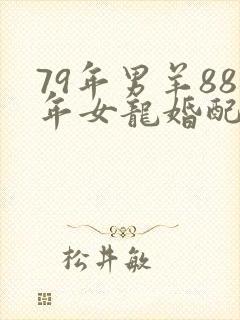 79年男羊88
年女龍婚配
松井敏